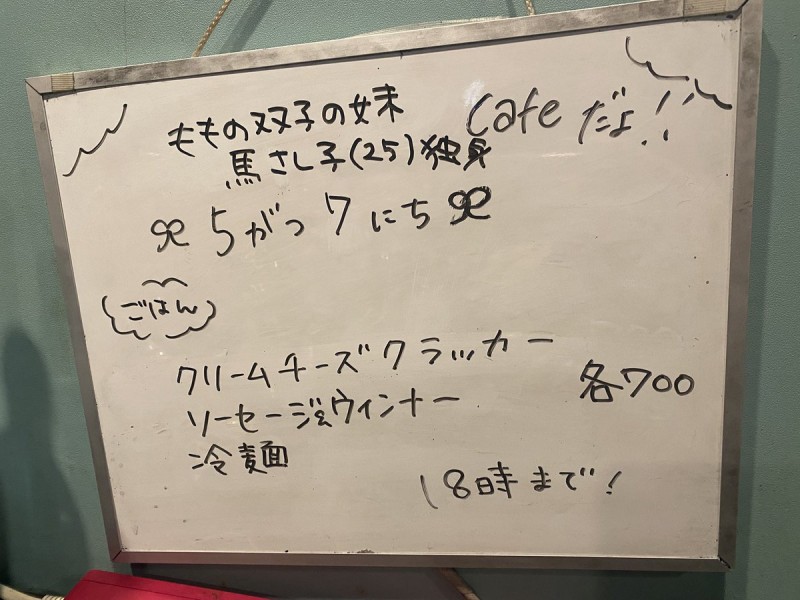 ももの双子の妹
cafeだよ!!
馬さし子(25)独身
5がつ7にち
ごはん
クリームチーズクラッカー
各700
ソーセージ&ウィンナー
冷麺
18時まで!